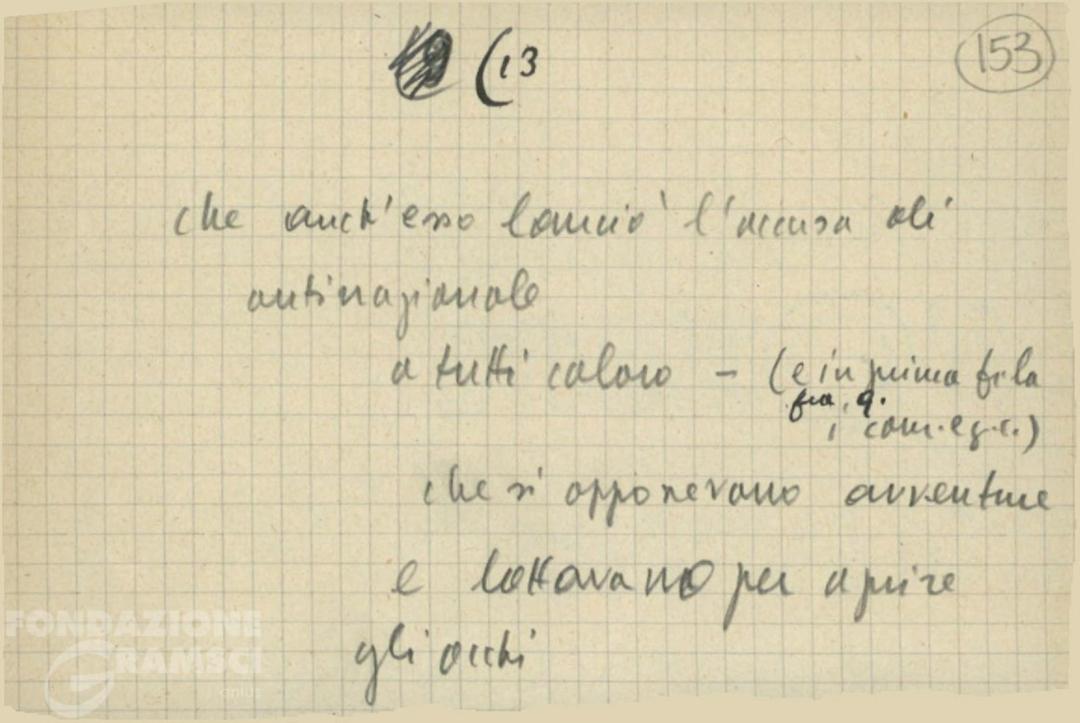 (13
153
che anch'esso lanciò l'accusa di
antinazionale
a tutti coloro – (e in prima fila
fra q.
i com. e g.c.)
che si opponevano avventure
e lottavano per aprire
gli occhi
FONDAZIONE
GRAMSCI
onlus